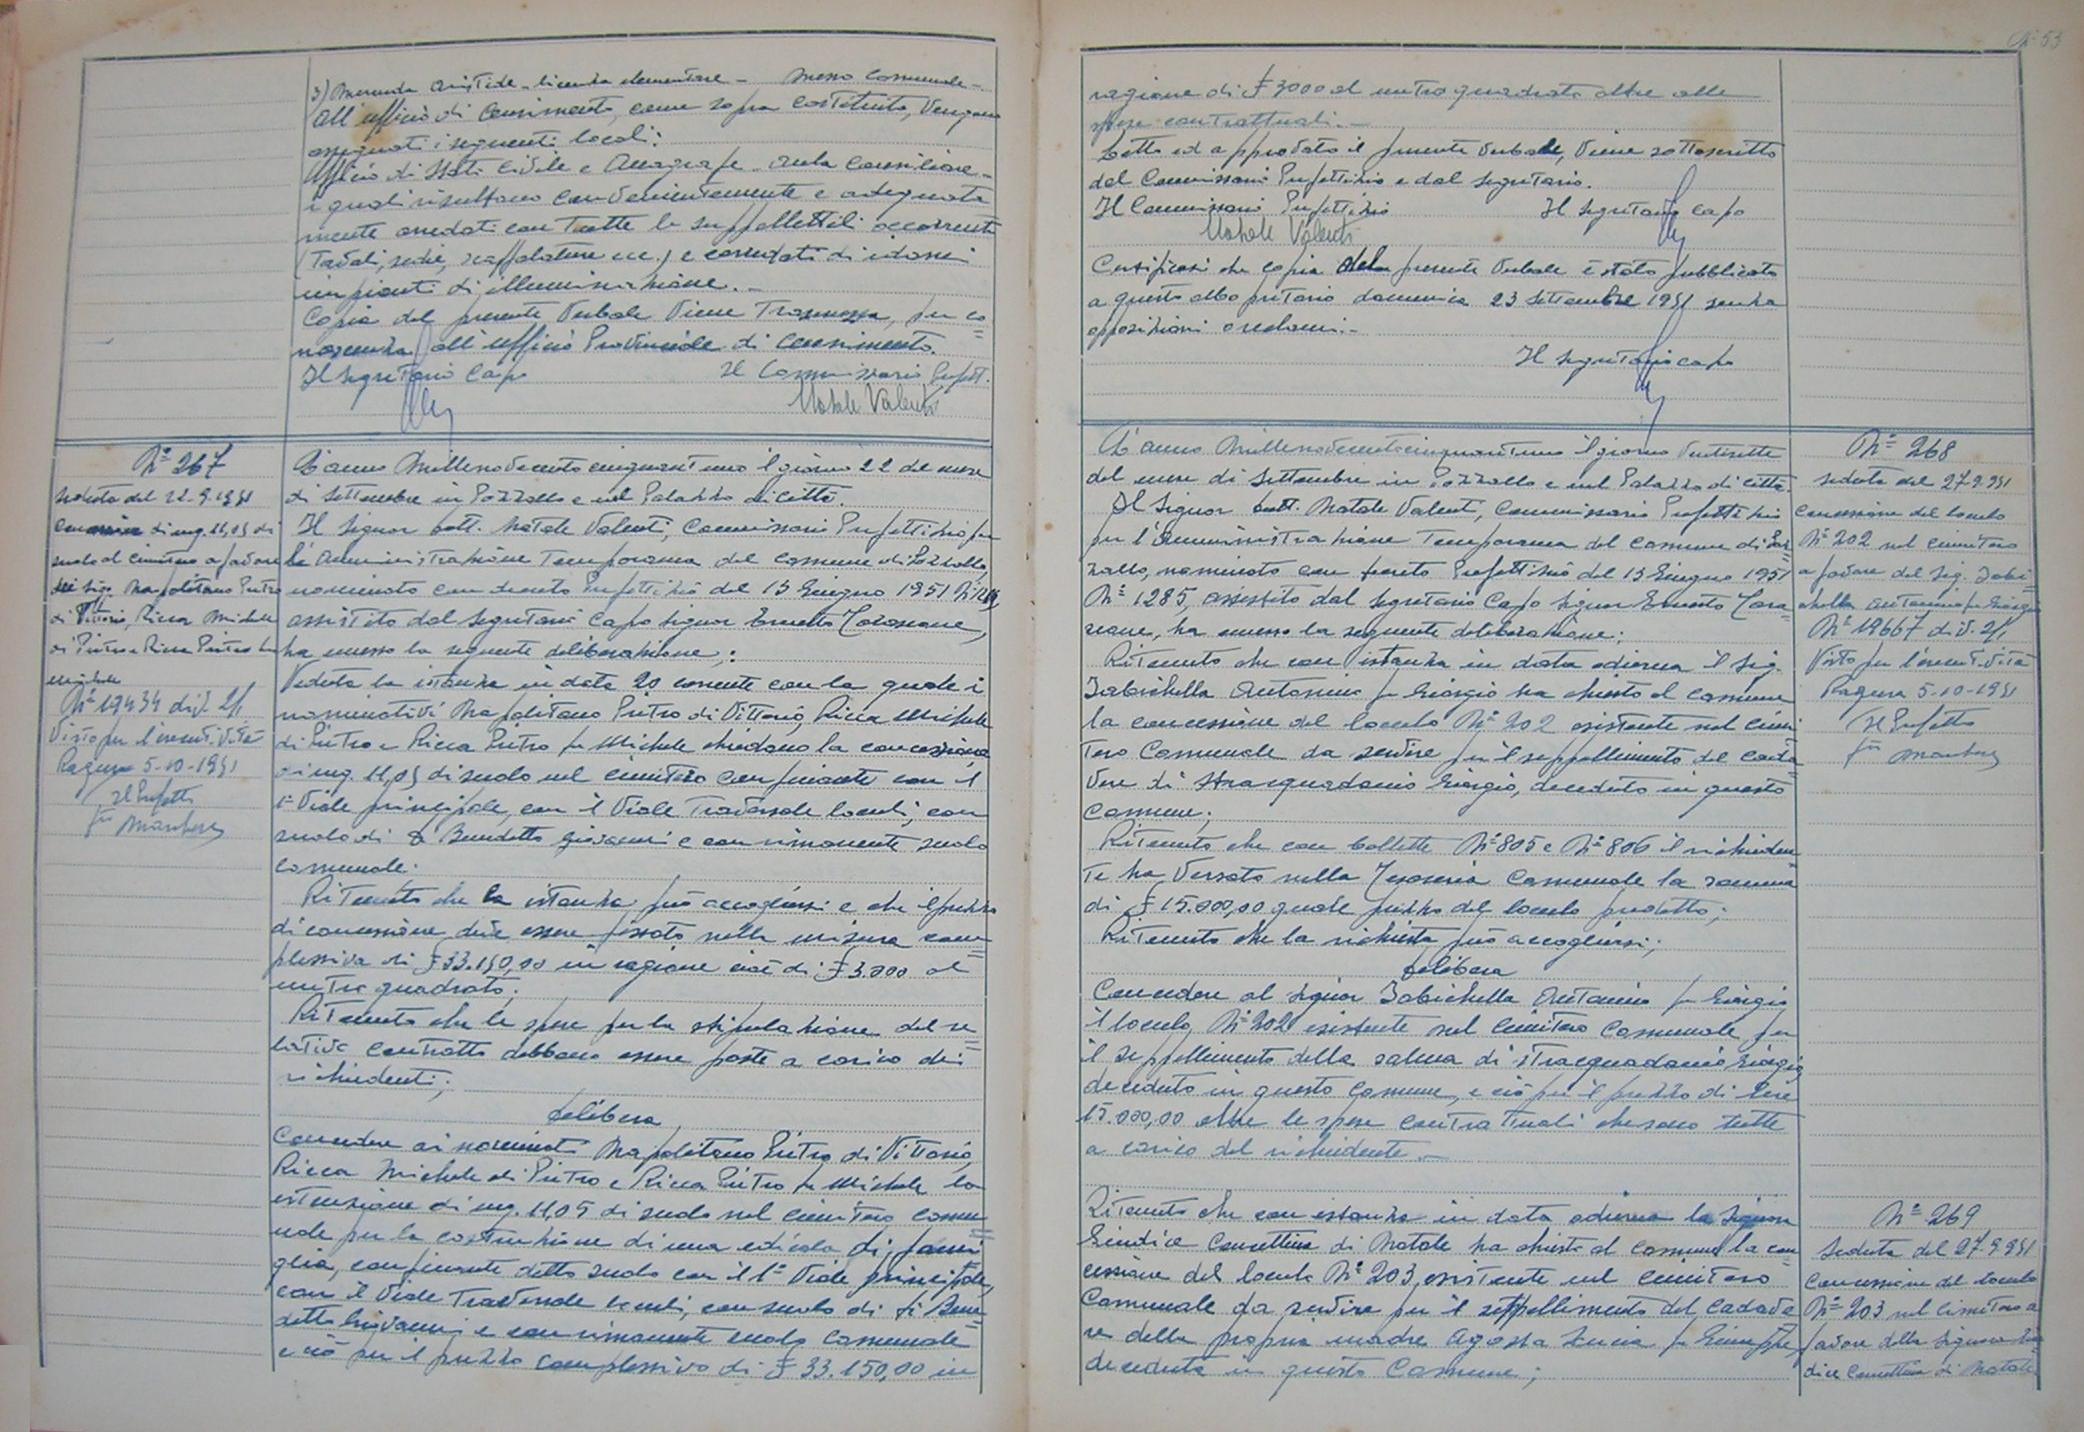 3) Merenda Aristide - licenza elementare - Messo Comunale -
All'ufficio di Censimento, come sopra costituito, vengono
assegnati i seguenti locali:
Ufficio di Stato Civile e Anagrafe - Aula Consiliare -
i quali risultano convenientemente e adeguata
mente arredati con tutte le suppellettili occorrenti
(tavoli, sedie, scaffalature ecc.) e corredati di idonei
impianti di illuminazione. -
Copia del presente Verbale viene trasmessa, per co=
noscenza, all'ufficio Provinciale di Censimento.
Il Segretario Capo Il Commissario Prefett.
Natale Valenti
N° 267
Seduta del 22-9-1951
Concessione di mq. 11,05 di
suolo al cimitero a favore
dei Sig. Napolitano Pietro
di Vittorio, Ricca Michele
di Pietro e Ricca Pietro fu
Michele
N° 19434 div. 2/1
Visto per l'esecutività
Ragusa 5-10-1951
Il Prefetto
L'anno Millenovecentocinquantuno il giorno 22 del mese
di Settembre in Pozzallo e nel Palazzo di città.
Il Signor Dott. Natale Valenti, Commissario Prefettizio per
la Amministrazione Temporanea del Comune di Pozzallo,
nominato con decreto Prefettizio del 13 Giugno 1951 N° 1285
assistito dal Segretario Capo Signor Ernesto
ha emesso la seguente deliberazione;:
Veduta la istanza in data 20 corrente con la quale i
nominativi Napolitano Pietro di Vittorio, Ricca Michele
di Pietro e Ricca Pietro fu Michele chiedono la concessione
di mq. 11,05 di suolo nel cimitero confinante con il
1° Viale principale, con il Viale Trasversale loculi, con
suolo di Di Benedetto Giovanni e con rimanente suolo
comunale.
Ritenuto che la istanza può accogliersi e che il prezzo
di concessione deve essere fissato nella misura com=
plessiva di £ 33.150,00 in ragione cioè di £ 3.000 al
metro quadrato;
Ritenuto che le spese per la stipulazione del re=
lativo contratto debbono essere poste a carico dei
richiedenti;
Delibera
Concedere ai nominati Napolitano Pietro di Vittorio,
Ricca Michele di Pietro e Ricca Pietro fu Michele la
estensione di mq. 11,05 di suolo nel cimitero comu=
nale per la costruzione di una edicola di fami=
glia, confinante detto suolo con il 1° Viale principale,
con il Viale Trasversale loculi, con suolo di Di Bene=
detto Giovanni e con rimanente suolo comunale
e ciò per il prezzo complessivo di £ 33.150,00 in
53
ragione di £ 3000 al metro quadrato oltre alle
spese contrattuali. -
Letto ed approvato il presente Verbale, viene sottoscritto
dal Commissario Prefettizio e dal Segretario.
Il Commissario Prefettizio Il Segretario Capo
Natale Valenti
Certificasi che copia della presente Verbale è stata pubblicata
a questo albo pretorio domenica 23 Settembre 1951 senza
opposizioni o reclami. -
Il Segretario Capo
L'anno Millenovecentocinquantuno il giorno Ventisette
del mese di Settembre in Pozzallo e nel Palazzo di città.
Il Signor Dott. Natale Valenti, Commissario Prefettizio
per l'Amministrazione Temporanea del Comune di Poz=
zallo, nominato con decreto Prefettizio del 13 Giugno 1951
N° 1285, assistito dal Segretario Capo Signor Ernesto
ha emesso la seguente deliberazione;
Ritenuto che con istanza in data odierna il Sig.
Iabichella Antonino fu Giorgio ha chiesto al comune
la concessione del loculo N° 202 esistente nel cimi
tero Comunale da servire per il seppellimento del cada=
vere di Stracquadanio Giorgio, deceduto in questo
Comune;
Ritenuto che con bollette N° 805 e N° 806 il richieden
te ha versato nella Tesoreria Comunale la somma
di £ 15.000,00 quale prezzo del loculo predetto;
Ritenuto che la richiesta può accogliersi;
Delibera
Concedere al Signor Iabichella Antonino fu Giorgio
il loculo N° 202 esistente nel Cimitero Comunale per
il seppellimento della salma di Stracquadanio Giorgio
deceduto in questo Comune, e ciò per il prezzo di Lire
15.000,00 oltre le spese contrattuali che sono tutte
a carico del richiedente. -
N° 268
Seduta del 27-9-951
Concessione del loculo
N° 202 nel cimitero
a favore del Sig. Iabi=
chella Antonino fu Giorgio
N° 19667 div. 2/1
Visto per l'esecutività
Ragusa 5-10-1951
Il Prefetto
Ritenuto che con istanza in data odierna la Signora
Giudice Concettina di Natale ha chiesto al comune la con
cessione del loculo N° 203, esistente nel cimitero
Comunale da servire per il seppellimento del cadave
re della propria madre Agosta Lucia fu Giuseppe,
deceduta in questo Comune;
N° 269
Seduta del 27-9-951
Concessione del loculo
N° 203 nel cimitero a
favore della Signora Giu=
dice Concettina di Natale